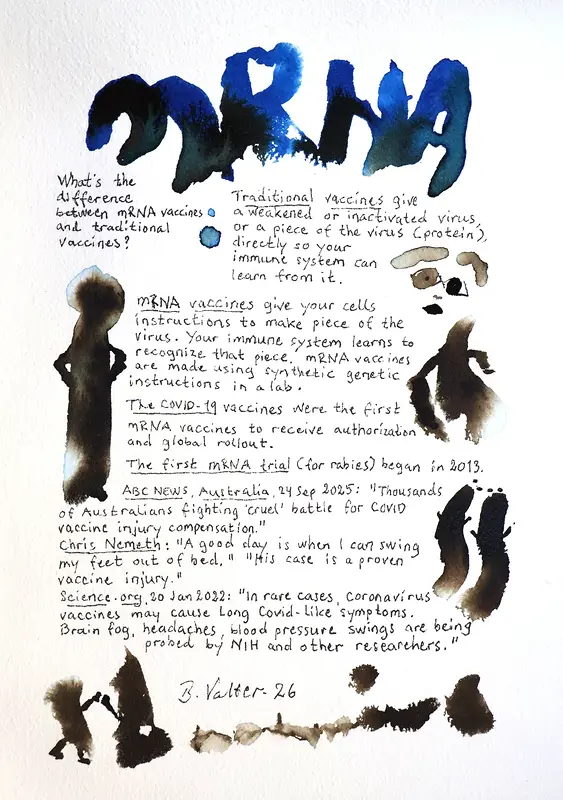 mRNA
What's the
difference
between mRNA vaccines
and traditional
vaccines?
Traditional vaccines give
a weakened or inactivated virus,
or a piece of the virus (protein),
directly so your
immune system can
learn from it.
mRNA vaccines give your cells
instructions to make piece of the
virus. Your immune system learns to
recognize that piece. mRNA vaccines
are made using synthetic genetic
instructions in a lab.
The COVID-19 vaccines were the first
mRNA vaccines to receive authorization
and global rollout.
The first mRNA trial (for rabies) began in 2013.
ABC NEWS, Australia, 24 Sep 2025: "Thousands
of Australians fighting 'cruel' battle for COVID
vaccine injury compensation."
Chris Nemeth: "A good day is when I can swing
my feet out of bed." "His case is a proven
vaccine injury."
Science.org, 20 Jan 2022: "In rare cases, Coronavirus
vaccines may cause Long Covid-like symptoms.
Brain fog, headaches, blood pressure swings are being
probed by NIH and other researchers."
B. Valter 26